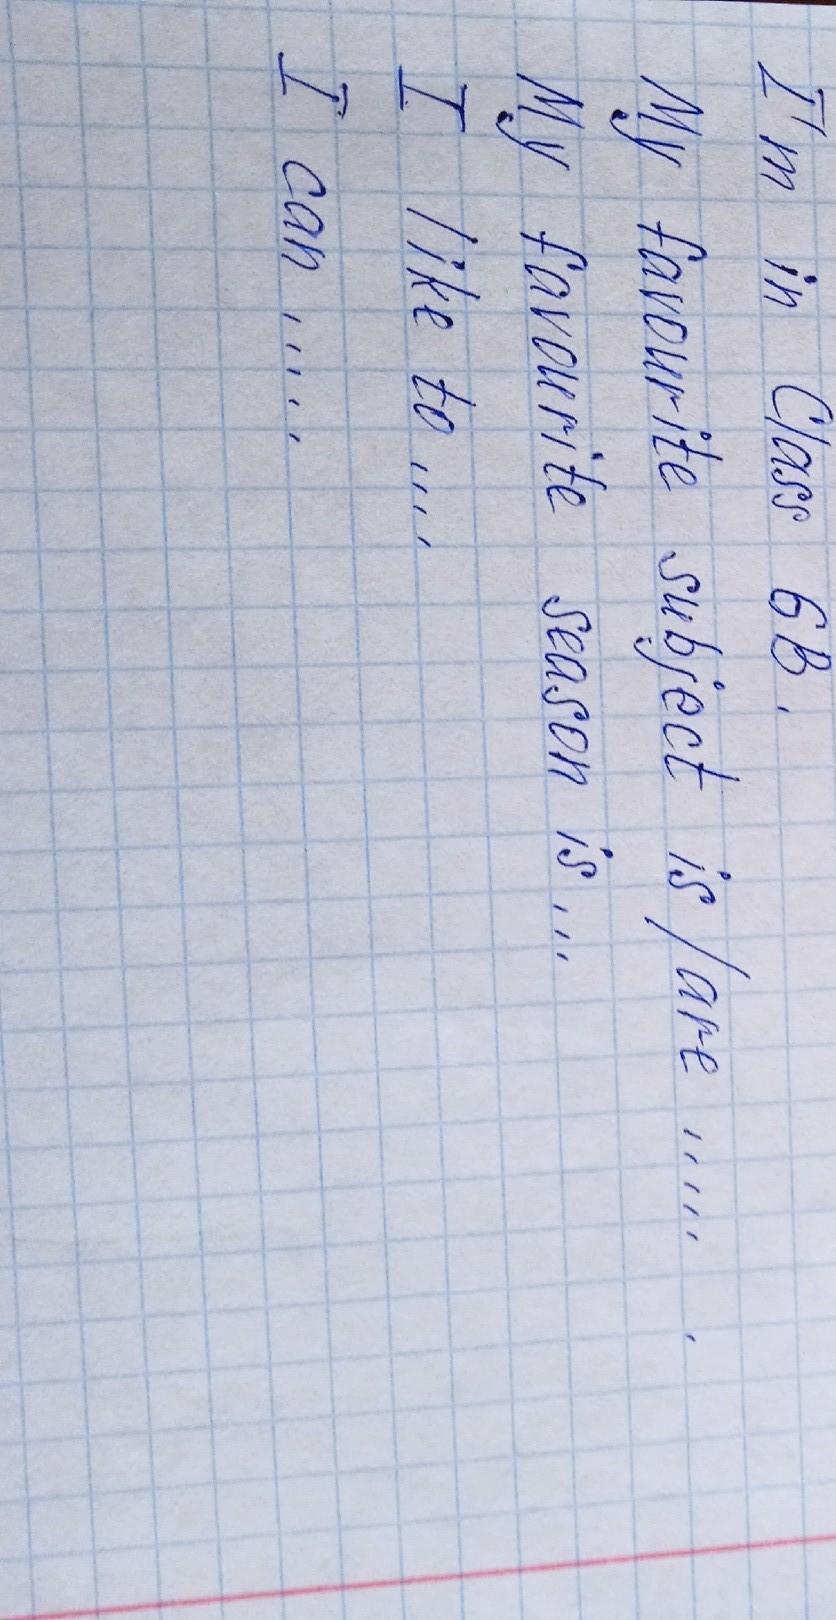 I'm in Class 6B.
My favourite subject is/are ..... .
My favourite season is...
I like to....
I can .....